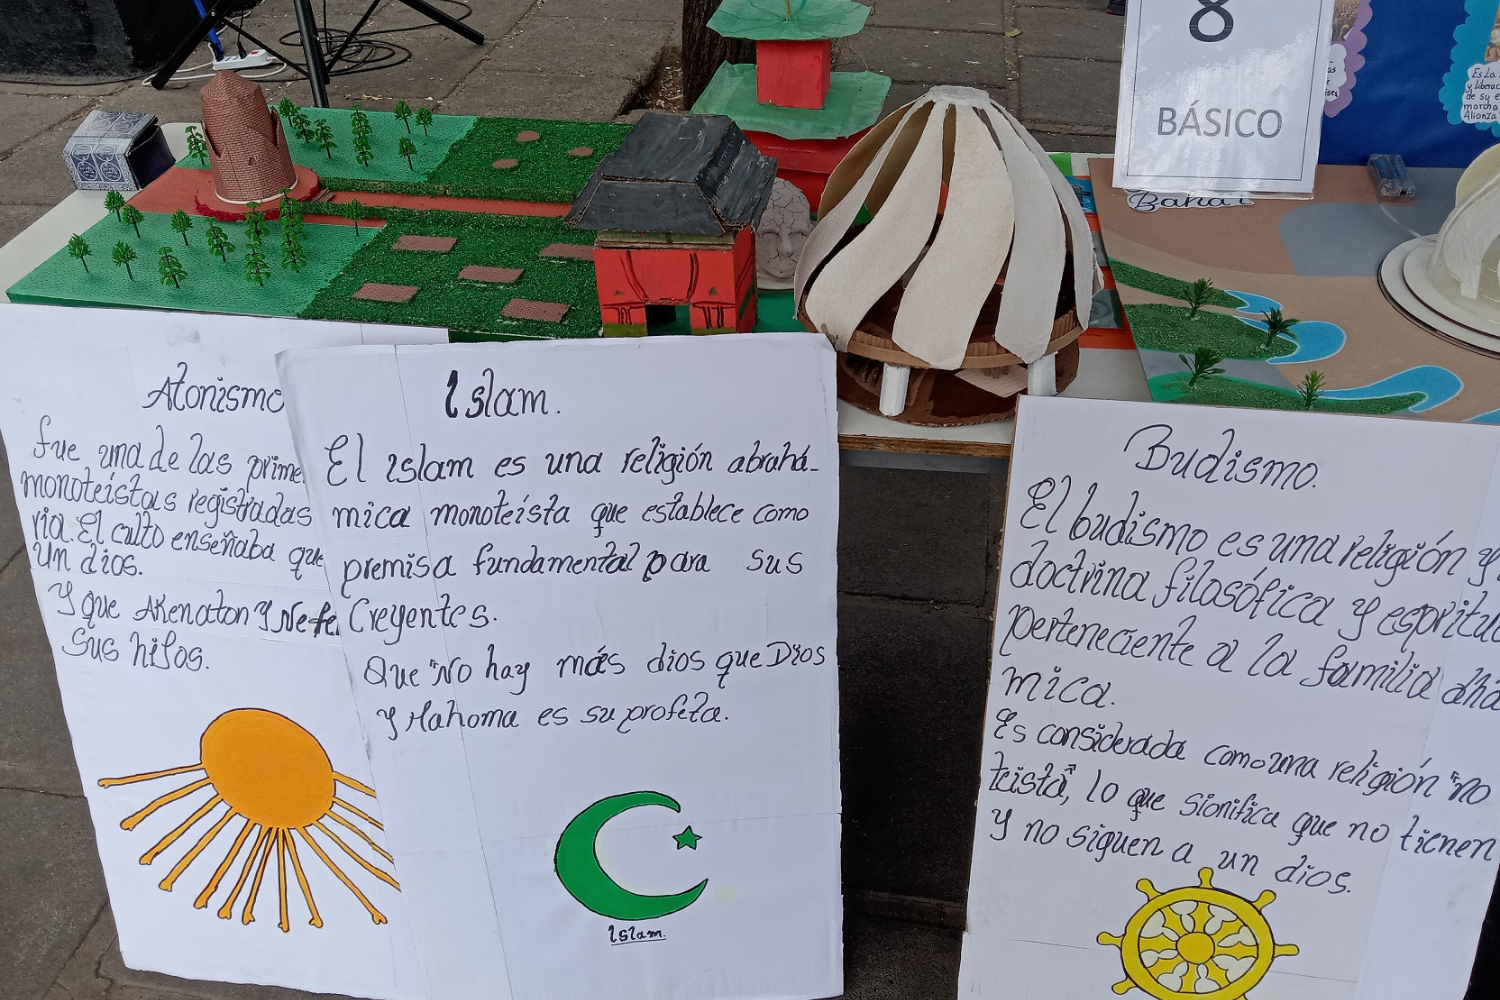 8
BÁSICO
Bahá'í
Es La
y liberac
de su e
morcha
Alianza
Atonismo
fue una de las prime
monoteístas registradas
ria. El culto enseñaba que
un dios.
Y que Akenaton y Nefe
sus hijos.
Islam.
El islam es una religión abrahá-
mica monoteísta que establece como
premisa fundamental para sus
Creyentes.
Que "No hay más dios que Dios
y Mahoma es su profeta.
Islam.
Budismo.
El budismo es una religión y
doctrina filosófica y espritu
perteneciente a la familia dhá
mica.
Es considerada como una religión "no
teista", lo que significa que no tienen
y no siguen a un dios.